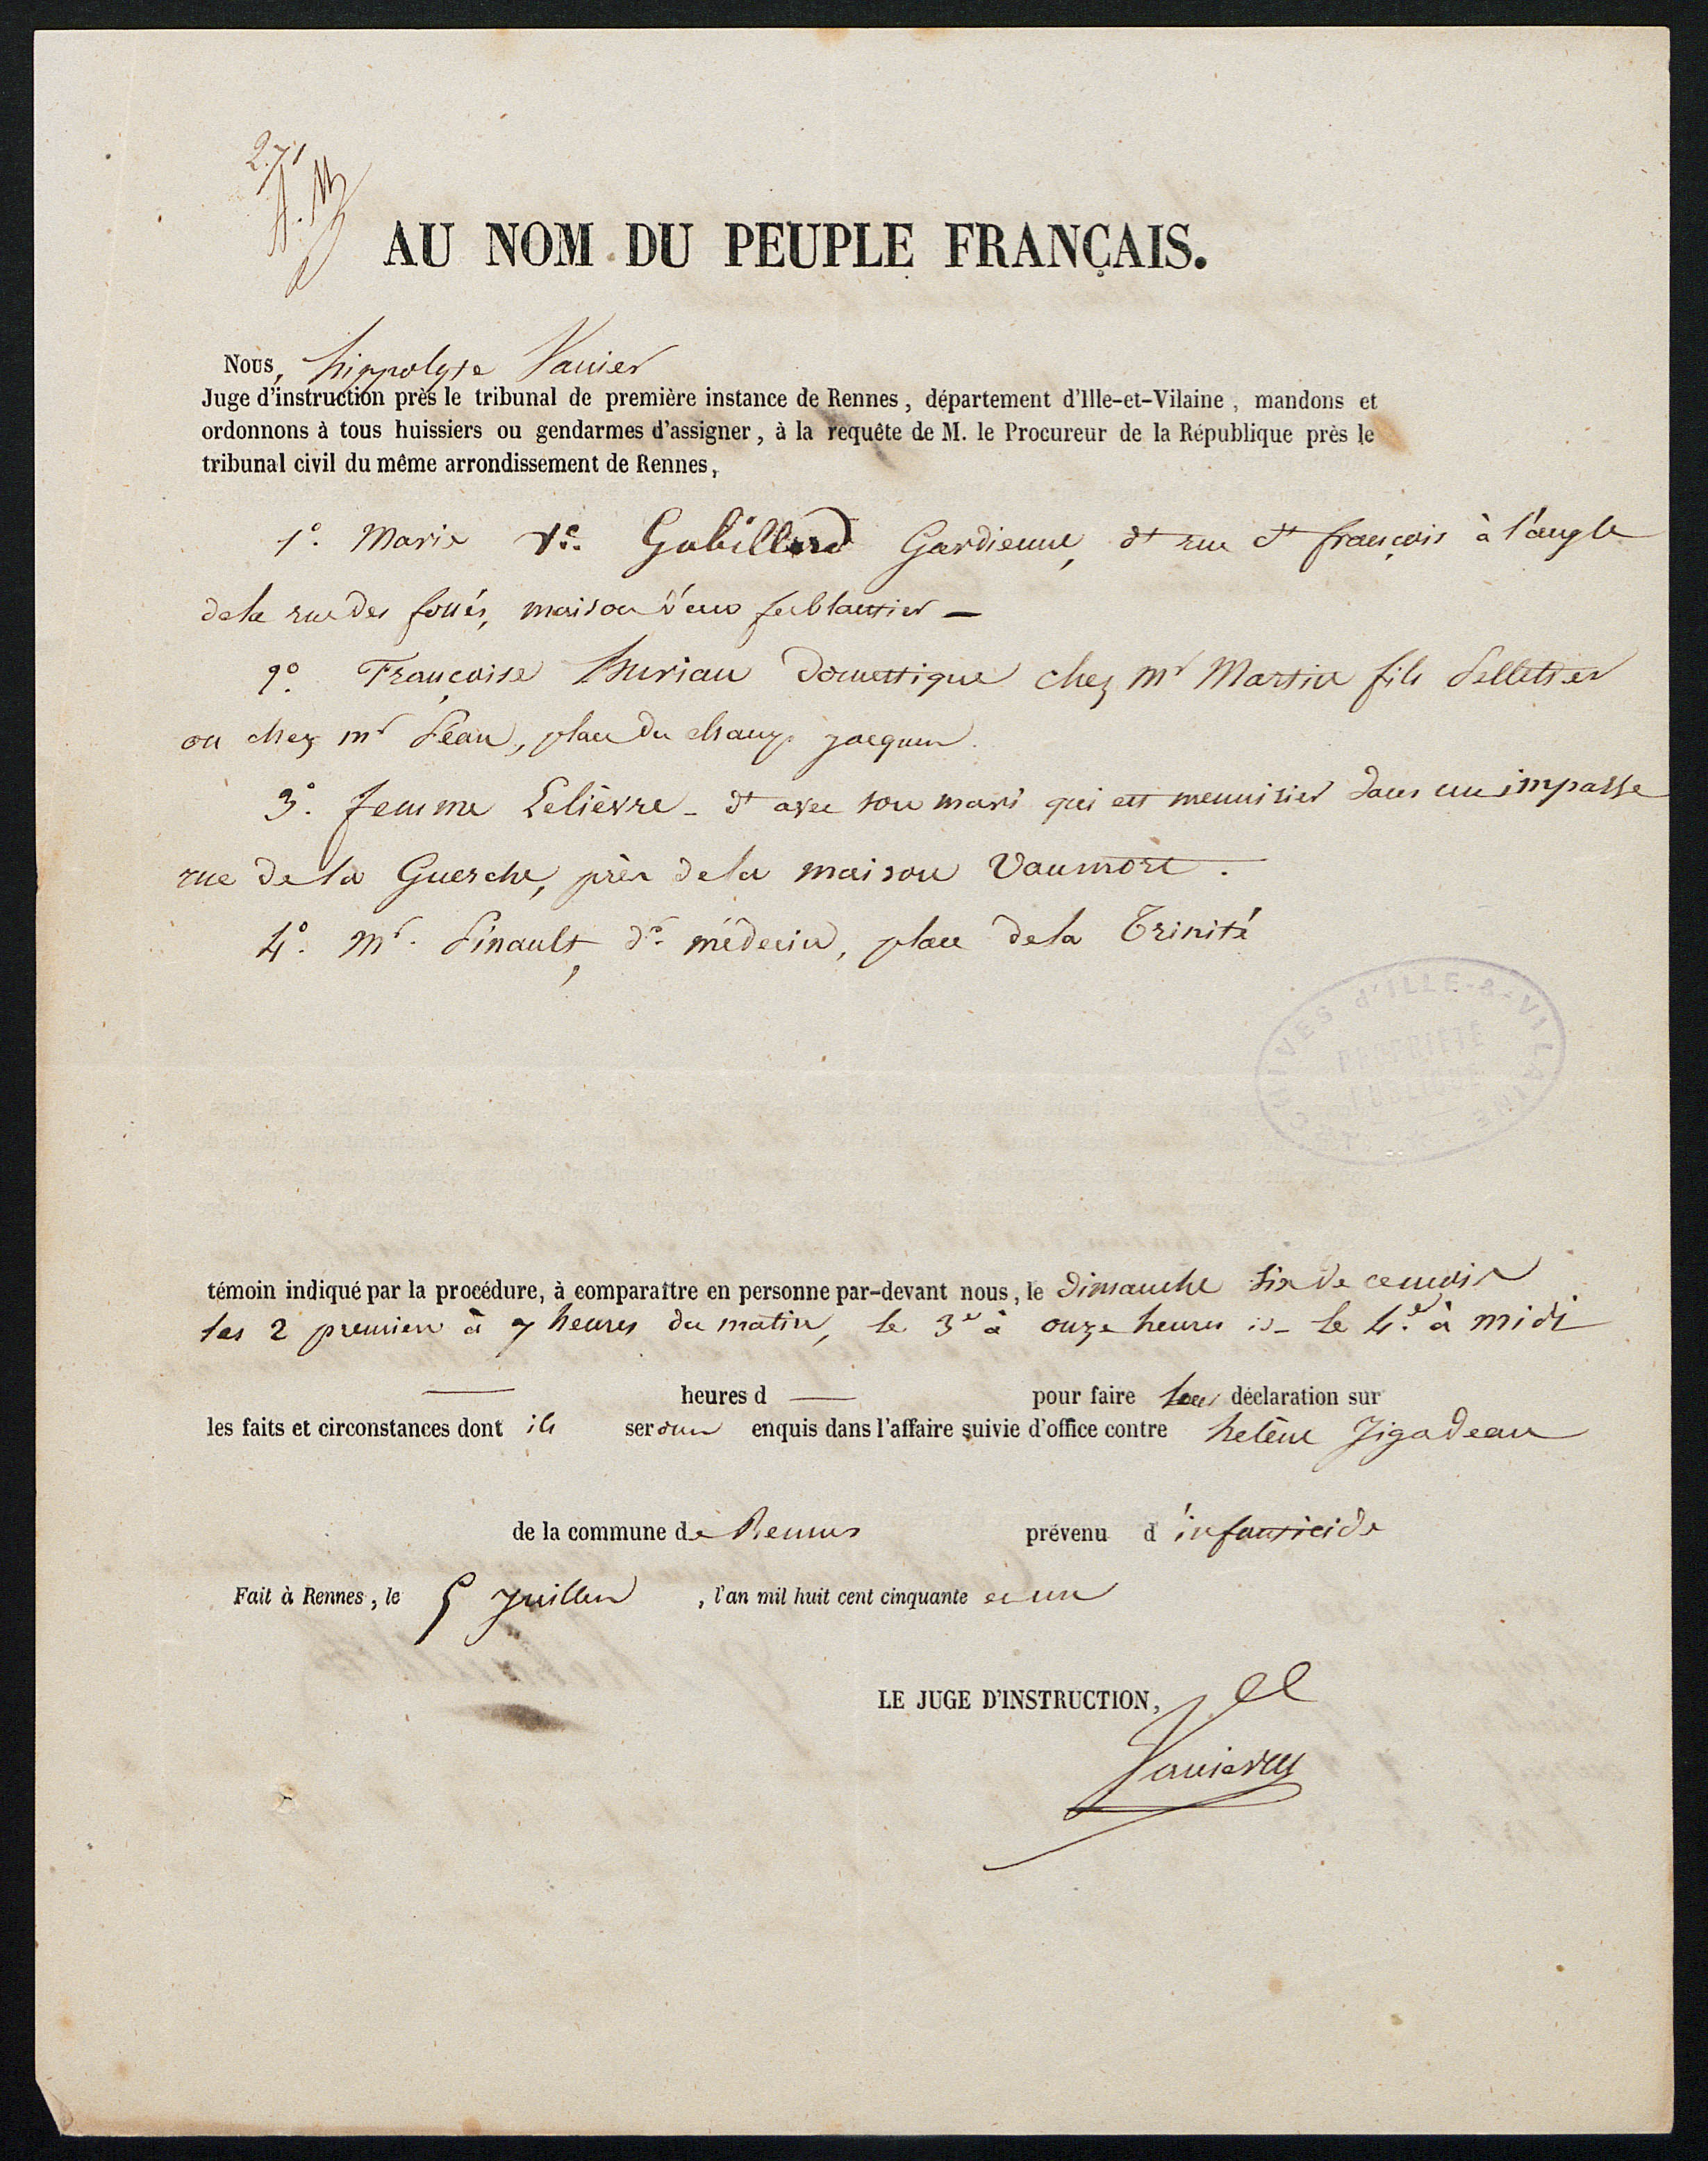 271
AU NOM DU PEUPLE FRANÇAIS.
Nous, hippolyte Vannier
Juge d'instruction près le tribunal de première instance de Rennes, département d'Ille-et-Vilaine, mandons et
ordonnons à tous huissiers ou gendarmes d'assigner, à la requête de M. le Procureur de la République près le
tribunal civil du même arrondissement de Rennes,
1° Marie Ve. Gabillard Gardienne, dt rue St françois à l'angle
de la rue des fossés, maison d'un ferblantier —
2° Françoise Thuriau Domestique chez Mr Martin fils Pelletier
ou chez mr Péan, place du champ jacquet.
3° femme Lelièvre - dt avec son mari qui est menuisier dans un impasse
rue de la Guerche, près de la maison Vaumort.
4° Mr. Pinault, dr. médecin, place de la Trinité
ARCHIVES d'ILLE-&-VILAINE
PROPRIÉTÉ
PUBLIQUE
témoin indiqué par la procédure, à comparaître en personne par-devant nous, le Dimanche six de ce mois
les 2 premiers à 7 heures du matin, le 3e à onze heures id - le 4e. à midi
— heures d — pour faire leur déclaration sur
les faits et circonstances dont ils seront enquis dans l'affaire suivie d'office contre helène Jigadeau
de la commune de Rennes prévenu d'infanticide
Fait à Rennes, le 5 Juillet, l'an mil huit cent cinquante et un
LE JUGE D'INSTRUCTION,
Vannier